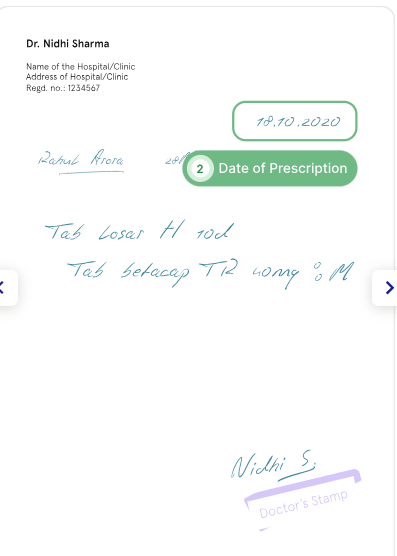 Dr. Nidhi Sharma
Name of the Hospital/Clinic
Address of Hospital/Clinic
Regd. no.: 1234567
18.10.2020
Rahul Arora 28M
2 Date of Prescription
Tab Losar H 10d
Tab betacap TR 40mg : M
Nidhi S.
Doctor's Stamp